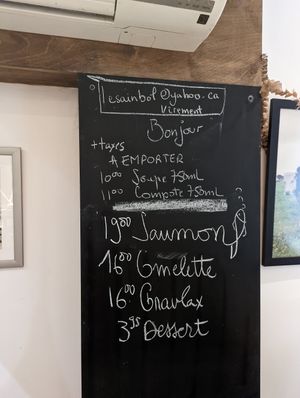 lesainbol@yahoo.ca
Virement
Bonjour
+taxes
A EMPORTER
10⁰⁰ Soupe 750mL
11⁰⁰ Compote 750mL
19⁰⁰ Saumon
16⁰⁰ Omelette
16⁰⁰ Gravlax
3⁹⁵ Dessert